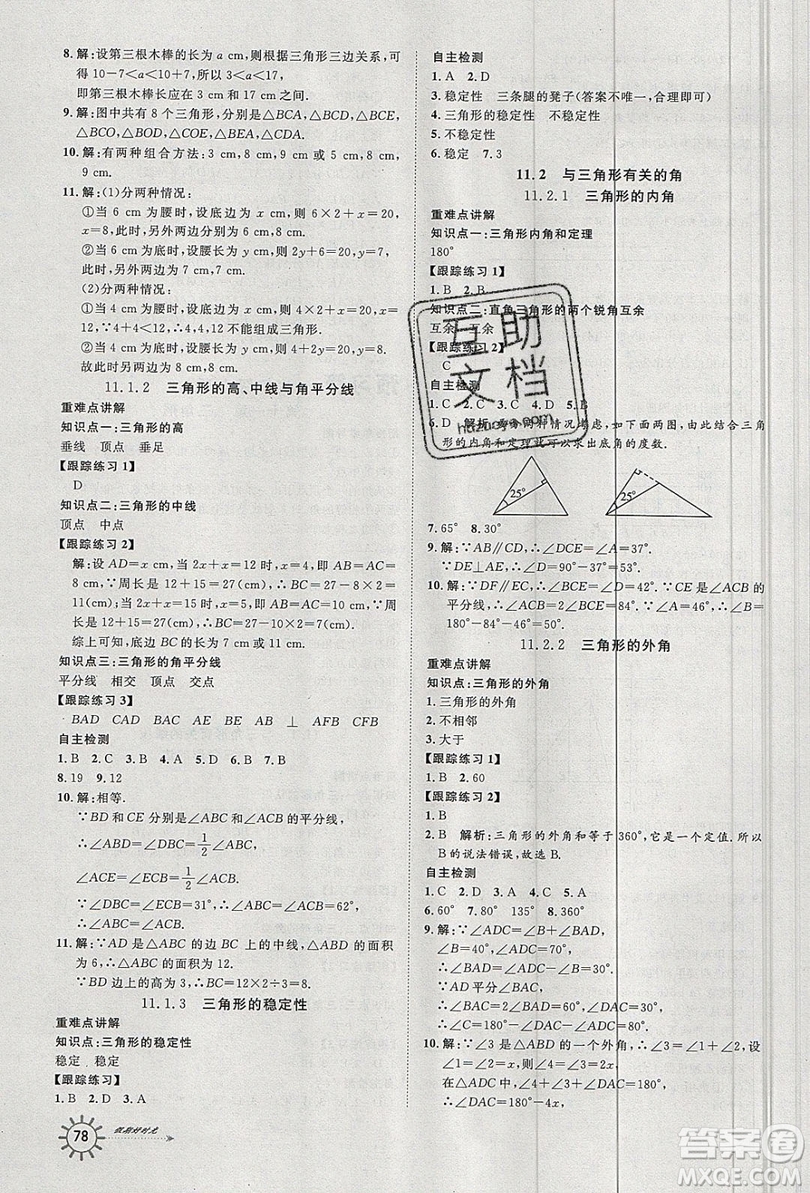 8. 解:设第三根木棒的长为 a cm,则根据三角形三边关系,可
得 10-7<a<10+7,所以 3<a<17,
即第三根木棒长应在 3 cm 和 17 cm 之间.
9. 解:图中共有 8 个三角形,分别是△BCA,△BCD,△BCE,
△BCO,△BOD,△COE,△BEA,△CDA.
10. 解:有两种组合方法:3 cm,8 cm,9 cm 或 5 cm,8 cm,
9 cm.
11. 解:(1)分两种情况:
①当 6 cm 为腰时,设底边为 x cm,则 6×2+x=20,x=8;
②当 6 cm 为底时,设腰长为 y cm,则 6+2y=20,y=7,
故此时,另外两边为 7 cm,7 cm.
此时,另外两边为 6 cm,8 cm.
(2)分两种情况:
①当 4 cm 为腰时,设底边为 x cm,则 4×2+x=20,x=
12,∵4+4<12,∴4,4,12 不能组成三角形.
②当 4 cm 为底时,设腰长为 y cm,则 4+2y=20,y=8,
故此时,另外两边为 8 cm,8 cm.
11.1.2 三角形的高、中线与角平分线
重难点讲解
知识点一:三角形的高
垂线 顶点 垂足
【跟踪练习 1】
D
知识点二:三角形的中线
顶点 中点
【跟踪练习 2】
解:设 AD=x cm,当 2x+x=12 时,x=4,∴BC=15-4=
8 cm,周长=12+15=27(cm),∴BC=11 cm;当 2x+x=
15 时,x=5,即 AD=5 cm,∴BC=12-5=7(cm),而周长=
周长=12+15=27(cm),∴BC=7(cm).
综上可知,底边 BC 的长为 7 cm 或 11 cm.
知识点三:三角形的角平分线
平分线 相交 顶点 交点
【跟踪练习 3】
BAD CAD BAC AE BE AB ⊥ AFB CFB
自主检测
1. B 2. C 3. B 4. A 5. D 6. B 7. B
8. 19 9. 12
10. 解:相等.
∵BD 和 CE 分别是∠ABC 和∠ACB 的平分线,
∴∠ABD=∠DBC=1/2∠ABC,
∠ACE=∠ECB=1/2∠ACB.
∵∠DBC=∠ECB=31°,∴∠ABC=∠ACB=62°.
∴∠ABC 与∠ACB 相等.
11. 解:∵AD 是△ABC 的边 BC 上的中线,△ABD 的面积
为 6,∴△ABC 的面积为 12.
∵BD 边上的高为 3,∴BC=12×2÷3=8.
11.1.3 三角形的稳定性
重难点讲解
知识点:三角形的稳定性
稳定 稳定
【跟踪练习】
1. B 2. D 3. A
78 假期好时光
自主检测
1. A 2. D
3. 稳定性 三条腿的凳子(答案不唯一,合理即可)
4. 三角形的稳定性 不稳定性
5. 不稳定性
6. 稳定 7. 3
11.2 与三角形有关的角
11.2.1 三角形的内角
重难点讲解
知识点一:三角形内角和定理
180°
【跟踪练习 1】
1. B 2. B
知识点二:直角三角形的两个锐角互余
互余 互余
【跟踪练习 2】
C
自主检测
1. C 2. C 3. C 4. A 5. B
6. D 解析:要分两种情况考虑,如下面两图,由此结合三角
形的内角和定理就可以求出底角的度数.
25° 25°
7. 65° 8. 30°
9. 解:∵AB∥CD,∴∠DCE=∠A=37°.
∵DE⊥AE,∴∠D=90°-∠DCE=90°-37°=53°.
10. 解:∵DF∥EC,∴∠BCE=∠D=42°,∵CE 是∠ACB 的
平分线,∴∠ACB=2∠BCE=84°,∵∠A=46°,∴∠B=
180°-84°-46°=50°.
11.2.2 三角形的外角
重难点讲解
知识点:三角形的外角
1. 三角形的外角
2. 不相邻
3. 大于
【跟踪练习 1】
1. B 2. 60
【跟踪练习 2】
1. B
2. B 解析:三角形的外角和等于 360°,它是一个定值.所以
B 的说法错误,故选 B.
自主检测
1. C 2. D 3. C 4. D 5. A
6. 60° 7. 50° 105° 8. 360°
9. 解:∵∠ADC=∠B+∠BAD,
∠B=40°,∠ADC=70°,
∴∠BAD=70°-40°=30°.
∵AD 平分∠BAC,
∴∠BAC=2∠BAD=60°,
∴∠C=180°-∠BAC-∠B=80°.
10. 解:∵∠3 是△ABD 的一个外角,∴∠3=∠1+∠2,设
∠1=∠2=x,则∠4=∠3=2x,
在△ADC 中,∠4+∠3+∠DAC=180°,
∴∠DAC=180°-4x,
互助
文档
答案圈
MXQE.COM